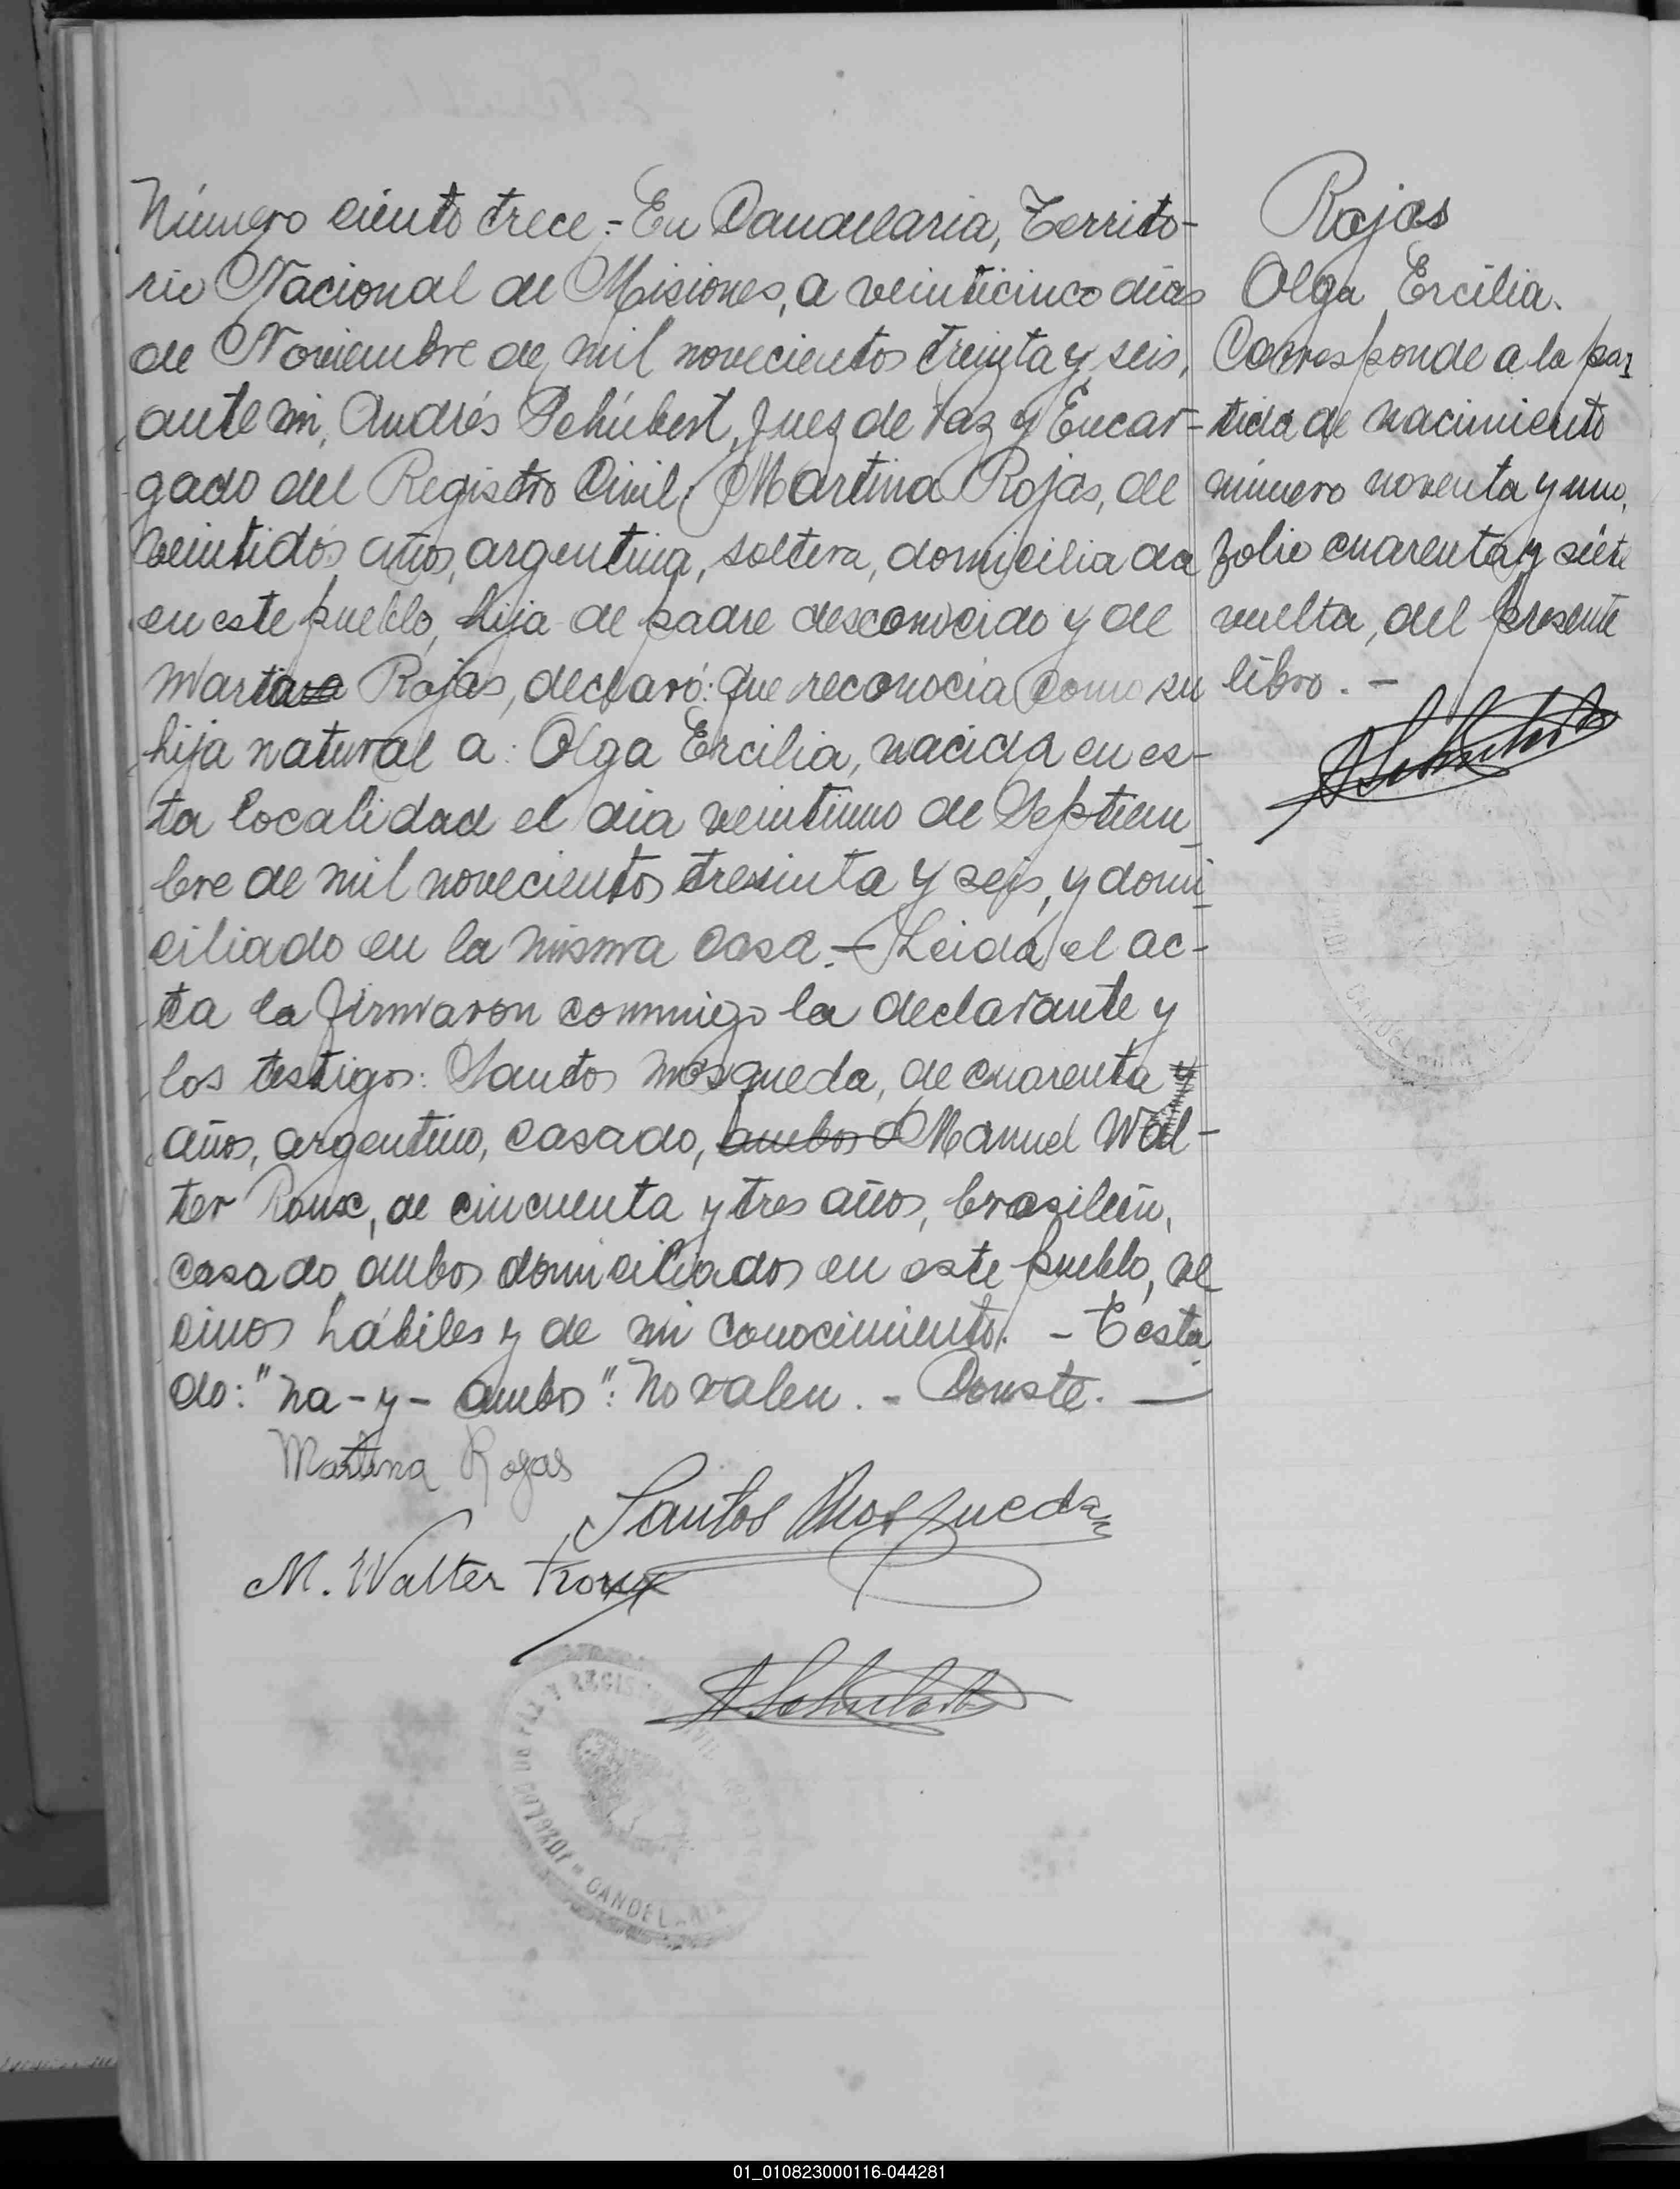 Número ciento trece.- En Candelaria, Territo-
rio Nacional de Misiones, a veinticinco días
de Noviembre de mil novecientos treinta y seis,
ante mi, Andrés Schúbert, Juez de Paz y Encar-
gado del Registro Civil; Martina Rojas, de
veintidós años, argentina, soltera, domiciliada
en este pueblo, hija de padre desconocido y de
Martana Rojas, declaró: que reconocía como su
hija natural a: Olga Ercilia, nacida en es-
ta localidad el día veintiuno de Septiem
bre de mil novecientos treinta y seis, y domi
ciliado en la misma casa.- Leida el ac-
ta la firmaron conmigo la declarante y
los testigos: Santos Mosqueda, de cuarenta y
años, argentino, casado, ambos d Manuel Wal-
ter Roux, de cincuenta y tres años, brasileño,
casado, ambos domiciliados en este pueblo, ve
cinos hábiles y de mi conocimiento. - Testa
do: "na - y - ambos": No valen. - Conste. -
Martina Rojas
Santos Mosqueda
M. Walter Roux
A Schubert
CANDELARIA
Rojas
Olga Ercilia.
Corresponde a la par
tida de nacimiento
número noventa y uno,
folio cuarenta y siete
vuelta, del presente
libro. -
A Schubert
CANDELARIA
01_010823000116-044281